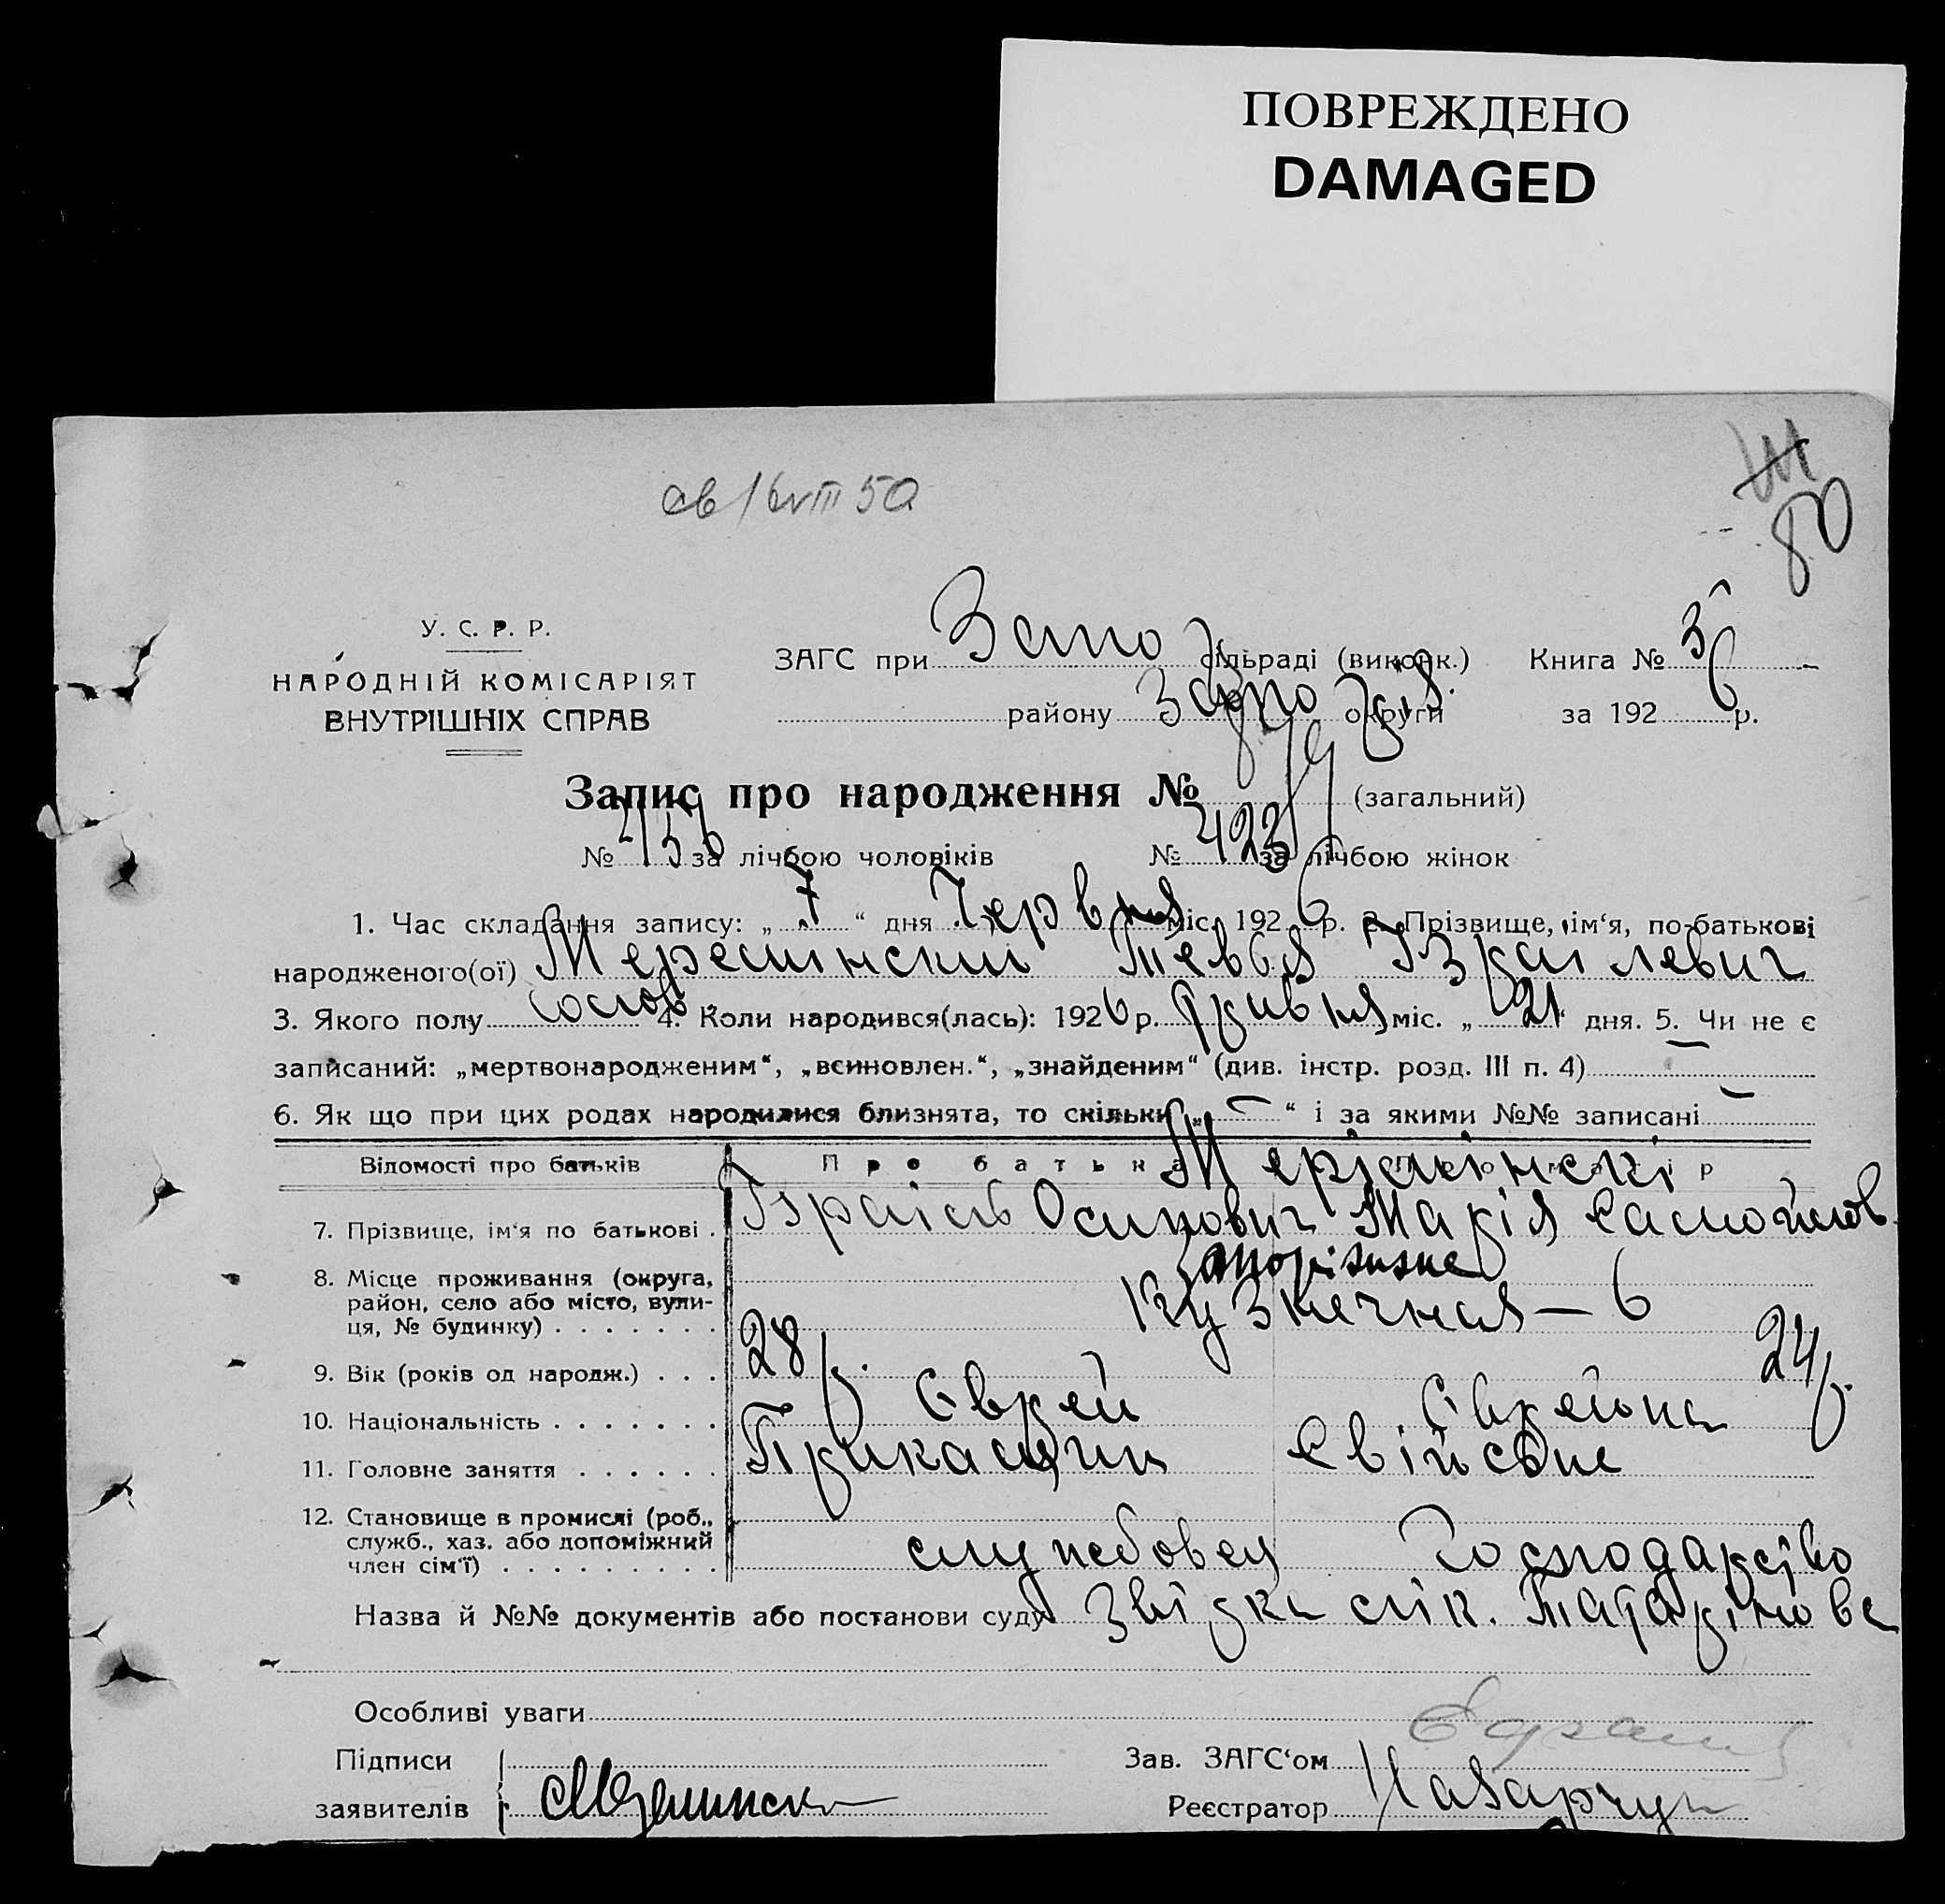 ПОВРЕЖДЕНО
DAMAGED
80
У. С. Р. Р.
НАРОДНІЙ КОМІСАРІЯТ
ВНУТРІШНІХ СПРАВ
ЗАГС при Запо сільраді (виконк.) Книга № 3
району Запо округи за 1926 р.
Запис про народження № 879 (загальний)
№ 456 за лічбою чоловіків № 423 за лічбою жінок
1. Час складання запису: „7“ дня Червня міс. 1926 р. 2. Прізвище, ім‘я, по-батькові
народженого(ої) Мерешинский Тевья Израілевич
3. Якого полу 4. Коли народився(лась): 1926 р. міс. „21“ дня. 5. Чи не є
записаний: „мертвонародженим“, „всиновлен.“, „знайденим“ (див. інстр. розд. III п. 4) —
6. Як що при цих родах народилися близнята, то скільки „—“ і за якими №№ записані —
Відомості про батьків Про батька Про матір
7. Прізвище, ім‘я по батькові . Ізраїль Осипович Марія Самойлов.
8. Місце проживання (округа, Запоріжжє
район, село або місто, вули-
ця, № будинку) . . . . . . . Кузнечная — 6
9. Вік (років од народж.) . . . 28 р. 24 р.
10. Національність . . . . . . . Єврей Єврейка
11. Головне заняття . . . . . . Прикащик Свійське
12. Становище в промислі (роб.,
служб., хаз. або допоміжний
член сім‘ї) . . . . . . . . . службовец Господарство
Назва й №№ документів або постанови суду Звідка лік.
Особливі уваги
Підписи
заявителів
Зав. ЗАГС‘ом
Реєстратор Назарчук